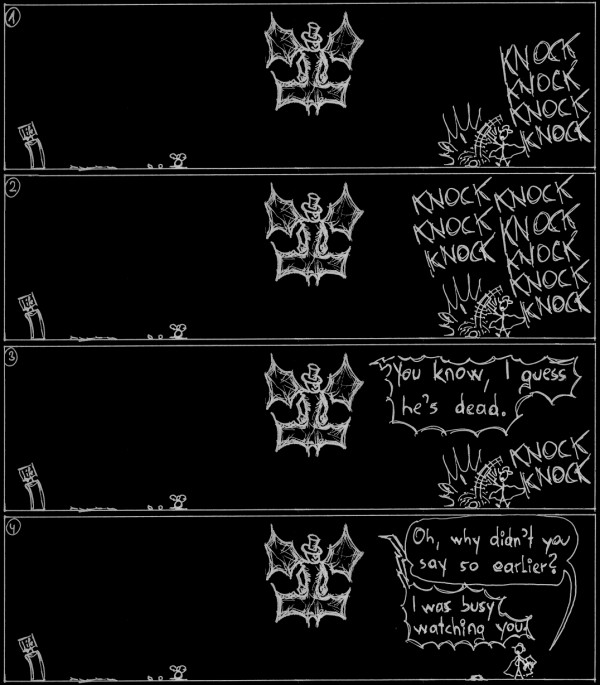 1
KNOCK
KNOCK
KNOCK
KNOCK
2
KNOCK KNOCK
KNOCK KNOCK
KNOCK KNOCK
KNOCK
KNOCK
3
You know, I guess
he's dead.
KNOCK
KNOCK
4
Oh, why didn't you
say so earlier?
I was busy
watching you.